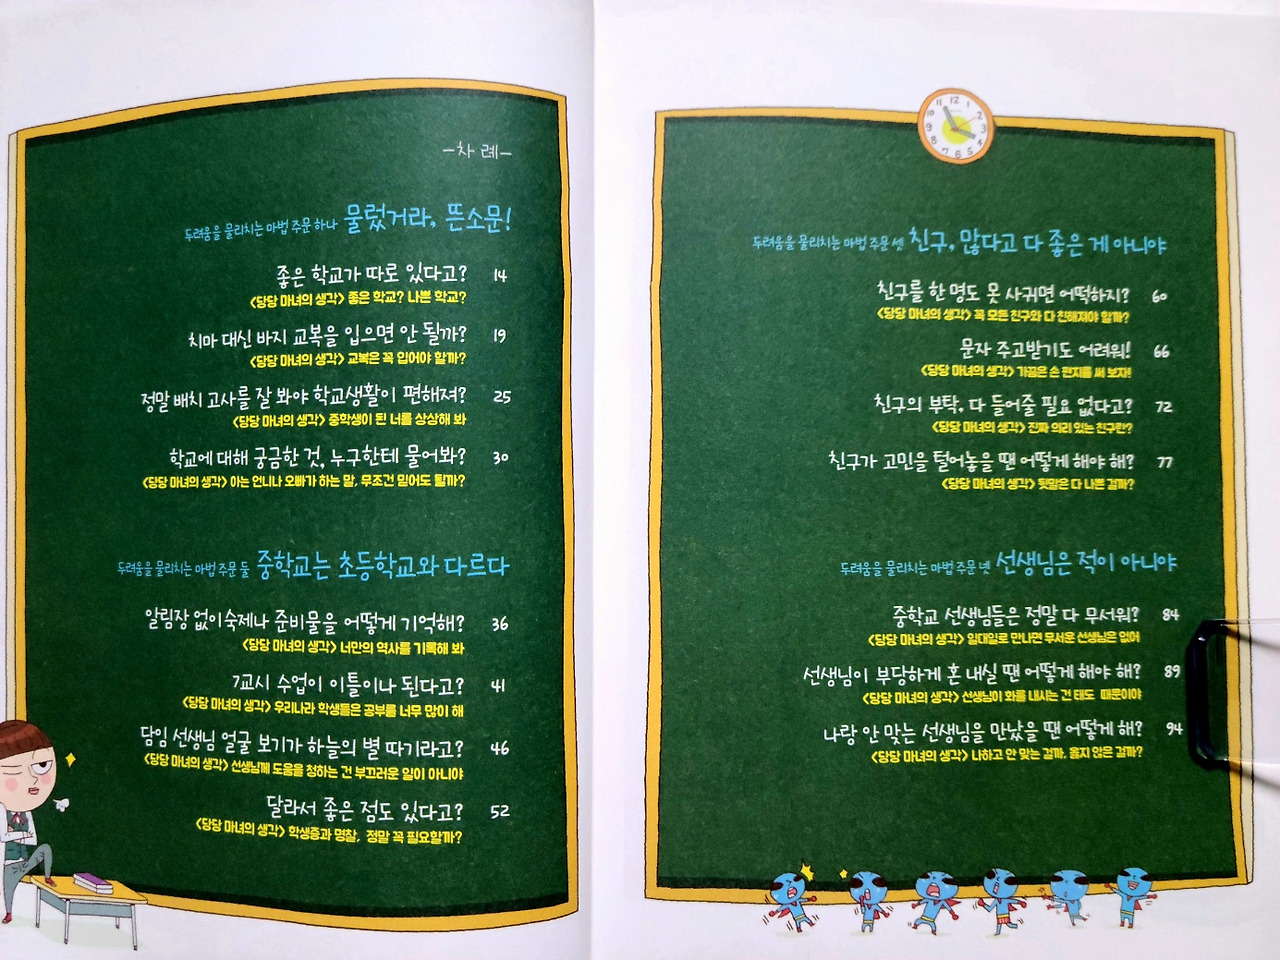 -차 례-
두려움을 물리치는 마법 주문 하나 물렀거라, 뜬소문!
좋은 학교가 따로 있다고? 14
<당당 마녀의 생각> 좋은 학교? 나쁜 학교?
치마 대신 바지 교복을 입으면 안 될까? 19
<당당 마녀의 생각> 교복은 꼭 입어야 할까?
정말 배치 고사를 잘 봐야 학교생활이 편해져? 25
<당당 마녀의 생각> 중학생이 된 너를 상상해 봐
학교에 대해 궁금한 것, 누구한테 물어봐? 30
<당당 마녀의 생각> 아는 언니나 오빠가 하는 말, 무조건 믿어도 될까?
두려움을 물리치는 마법 주문 둘 중학교는 초등학교와 다르다
알림장 없이 숙제나 준비물을 어떻게 기억해? 36
<당당 마녀의 생각> 너만의 역사를 기록해 봐
7교시 수업이 이틀이나 된다고? 41
<당당 마녀의 생각> 우리나라 학생들은 공부를 너무 많이 해
담임 선생님 얼굴 보기가 하늘의 별 따기라고? 46
<당당 마녀의 생각> 선생님께 도움을 청하는 건 부끄러운 일이 아니야
달라서 좋은 점도 있다고? 52
<당당 마녀의 생각> 학생증과 명찰, 정말 꼭 필요할까?
12 1 2 3 4 5 6 7 8 9 10 11
두려움을 물리치는 마법 주문 셋 친구, 많다고 다 좋은 게 아니야
친구를 한 명도 못 사귀면 어떡하지? 60
<당당 마녀의 생각> 꼭 모든 친구와 다 친해져야 할까?
문자 주고받기도 어려워! 66
<당당 마녀의 생각> 가끔은 손 편지를 써 보자!
친구의 부탁, 다 들어줄 필요 없다고? 72
<당당 마녀의 생각> 진짜 의리 있는 친구란?
친구가 고민을 털어놓을 땐 어떻게 해야 해? 77
<당당 마녀의 생각> 뒷말은 다 나쁜 걸까?
두려움을 물리치는 마법 주문 넷 선생님은 적이 아니야
중학교 선생님들은 정말 다 무서워? 84
<당당 마녀의 생각> 일대일로 만나면 무서운 선생님은 없어
선생님이 부당하게 혼내실 땐 어떻게 해야 해? 89
<당당 마녀의 생각> 선생님이 화를 내시는 건 태도 때문이야
나랑 안 맞는 선생님을 만났을 땐 어떻게 해? 94
<당당 마녀의 생각> 나하고 안 맞는 걸까, 옳지 않은 걸까?